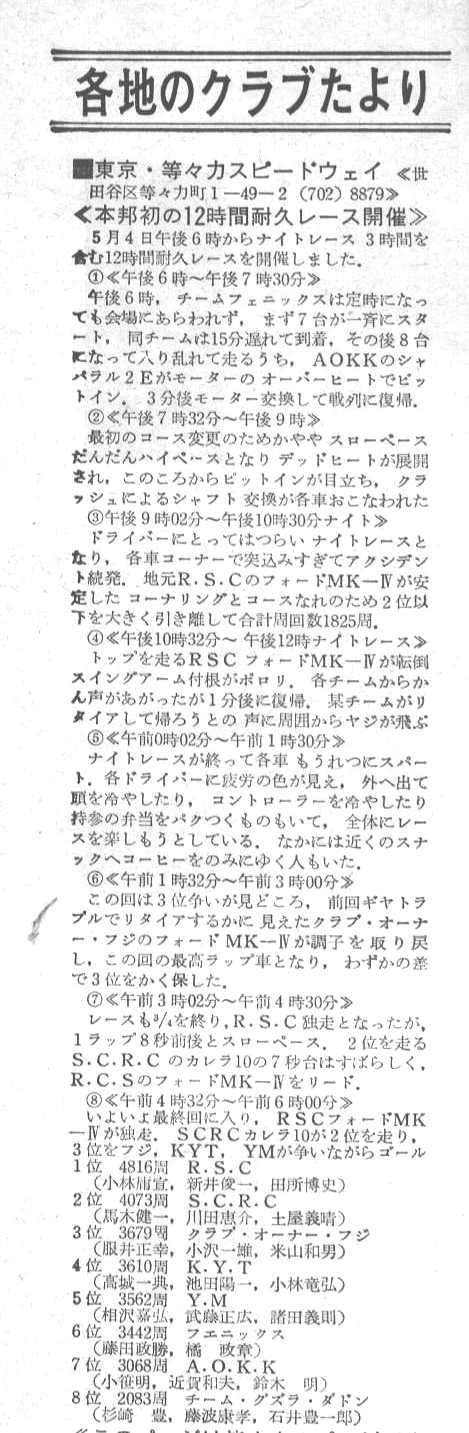 各地のクラブたより
■東京・等々力スピードウェイ ≪世
田谷区等々力町1―49―2 (702) 8879≫
≪本邦初の12時間耐久レース開催≫
5月4日午後6時からナイトレース 3時間を
含む12時間耐久レースを開催しました.
①≪午後6時～午後7時30分≫
午後6時, チームフェニックスは定時になっ
ても会場にあらわれず, まず7台が一斉にスタ
ート, 同チームは15分遅れて到着, その後8台
になって入り乱れて走るうち, AOKKのシャ
パラル2Eがモーターの オーバーヒートでピッ
トイン. 3分後モーター交換して戦列に復帰.
②≪午後7時32分～午後9時≫
最初のコース変更のためかやや スローペース
だんだんハイペースとなり デッドヒートが展開
され, このころからピットインが目立ち, クラ
ッシュによるシャフト 交換が各車おこなわれた
③午後9時02分～午後10時30分ナイト≫
ドライバーにとってはつらい ナイトレースと
なり, 各車コーナーで突込みすぎてアクシデン
ト続発. 地元R.S.CのフォードMK―Ⅳが安
定した コーナリングとコースなれのため2位以
下を大きく引き離して合計周回数1825周.
④≪午後10時32分～ 午後12時ナイトレース≫
トップを走るRSC フォードMK―Ⅳが転倒
スイングアーム付根がポロリ. 各チームからか
ん声があがったが1分後に復帰. 某チームがリ
タイアして帰ろうとの 声に周囲からヤジが飛ぶ
⑤≪午前0時02分～午前1時30分≫
ナイトレースが終って各車 もうれつにスパー
ト. 各ドライバーに疲労の色が見え, 外へ出て
頭を冷やしたり, コントローラーを冷やしたり
持参の弁当をパクつくものもいて, 全体にレー
スを楽しもうとしている. なかには近くのスナ
ックへコーヒーをのみにゆく人もいた.
⑥≪午前1時32分～午前3時00分≫
この回は3位争いが見どころ, 前回ギヤトラ
ブルでリタイアするかに 見えたクラブ・オーナ
ー・フジのフォード MK―Ⅳが調子を取り戻
し, この回の最高ラップ車となり, わずかの差
で3位をかく保した.
⑦≪午前3時02分～午前4時30分≫
レースも3/4を終り, R.S.C独走となったが,
1ラップ8秒前後とスローペース. 2位を走る
S.C.R.C のカレラ10の7秒台はすばらしく,
R.C.SのフォードMK―Ⅳをリード.
⑧≪午前4時32分～午前6時00分≫
いよいよ最終回に入り, RSCフォードMK
―Ⅳが独走. SCRCカレラ10が2位を走り,
3位をフジ, KYT, YMが争いながらゴール
1位 4816周 R.S.C
(小林庸宣, 新井俊一, 田所博史)
2位 4073周 S.C.R.C
(馬木健一, 川田恵介, 土屋義晴)
3位 3679周 クラブ・オーナー・フジ
(服井正幸, 小沢一雄, 米山和男)
4位 3610周 K.Y.T
(高城一典, 池田陽一, 小林竜弘)
5位 3562周 Y.M
(相沢嘉弘, 武藤正広, 諸田義則)
6位 3442周 フェニックス
(藤田政勝, 橘 政章)
7位 3068周 A.O.K.K
(小笹明, 近賀和夫, 鈴木 明)
8位 2083周 チーム・グズラ・ダドン
(杉崎 豊, 藤波康孝, 石井豊一郎)